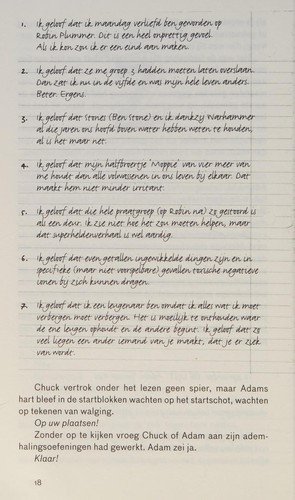 1. Ik geloof dat ik maandag verliefd ben geworden op
Robin Plummer. Dit is een heel onprettig gevoel.
Als ik kon zou ik er een eind aan maken.
2. Ik geloof dat ze me groep 3 hadden moeten laten overslaan.
Dan zat ik nu in de vijfde en was mijn hele leven anders.
Beter. Ergens.
3. Ik geloof dat Stones (Ben Stone) en ik dankzij Warhammer
al die jaren ons hoofd boven water hebben weten te houden,
al is het maar net.
4. Ik geloof dat mijn halfbroertje 'Moppie' van vier meer van
me houdt dan alle volwassenen in ons leven bij elkaar. Dat
maakt hem niet minder irritant.
5. Ik geloof dat die hele praatgroep (op Robin na) zo gestoord is
als een deur. Ik zie niet hoe het zou moeten helpen, maar
dat superheldenverhaal is wel aardig.
6. Ik geloof dat even getallen ingewikkelde dingen zijn en in
specifieke (maar niet voorspelbare) gevallen toxische negatieve
ionen bij zich kunnen dragen.
7. Ik geloof dat ik een leugenaar ben omdat ik alles wat ik moet
verbergen moet verbergen. Het is moeilijk te onthouden waar
de ene leugen ophoudt en de andere begint. Ik geloof dat zo
veel liegen een ander iemand van je maakt, dat je er ziek
van wordt.
Chuck vertrok onder het lezen geen spier, maar Adams
hart bleef in de startblokken wachten op het startschot, wachten
op tekenen van walging.
Op uw plaatsen!
Zonder op te kijken vroeg Chuck of Adam aan zijn adem-
halingsoefeningen had gewerkt. Adam zei ja.
Klaar!
18